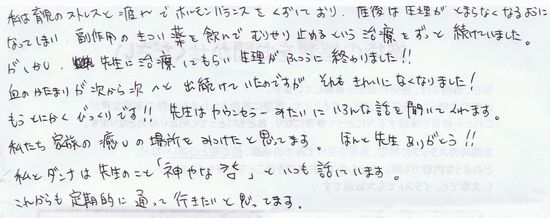 私は育児のストレスと疲れでホルモンバランスをくずしており、産後は生理がとまらなくなるように
なってしまい、副作用のきつい薬を飲んでむりやり止めるという治療をずっと続けていました。
がしかし、先生に治療してもらい生理がふつうに終わりました!!
血のかたまりが次から次へと出続けていたのですが、それもきれいになくなりました!
もうとにかくびっくりです!! 先生はカウンセラーみたいにいろんな話を聞いてくれます。
私たち家族の癒しの場所をみつけたと思ってます。ほんと先生ありがとう!!
私とダンナは先生のこと「神やな 」といつも話しています。
これからも定期的に通って行きたいと思ってます。